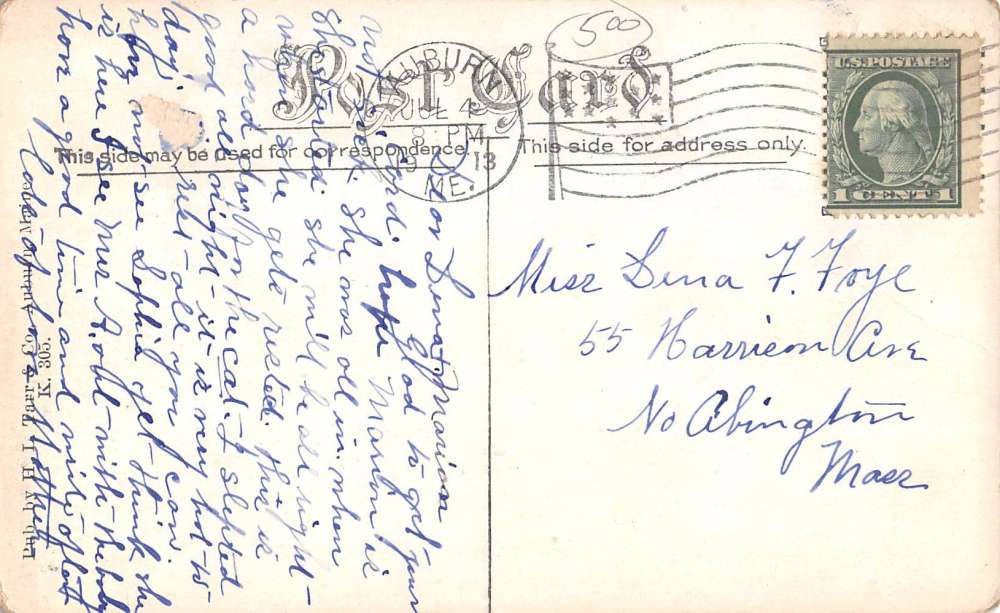 Post Card
This side may be used for correspondence.
This side for address only.
AUBURN
JUL 4
8 PM
1913
ME.
5.00
U.S. POSTAGE
1 CENT 1
Miss Lena F. Foye
55 Harrison Ave
No Abington
Mass
Dear Lena & Marion
Glad to get your
card. hope Marion is
not sick. She was all in when
she started. she will be all right
when she gets rested. this is
a hard day for the cat. I slept
good all night it is very hot to
day. rest all you can.
see Sophia get think she
is here I see Mrs Abbt with the baby
have a good time and write often
Love of
Mother
Pub. by H. J. Tarr & Co. Auburn Maine
K. 305.